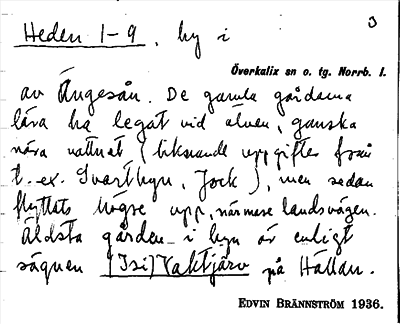 3
Heden 1-9, by i
Överkalix sn o. tg. Norrb. l.
av Ängesån. De gamla gårdarna
lära ha legat vid älven, ganska
nära vattnet (liknande uppgifter från
t. ex. Svartbyn, Jock), men sedan
flyttats högre upp, närmare landsvägen.
Äldsta gården i byn är enligt
sägnen [Isi] Vaktjärv på Hällan.
EDVIN BRÄNNSTRÖM 1936.